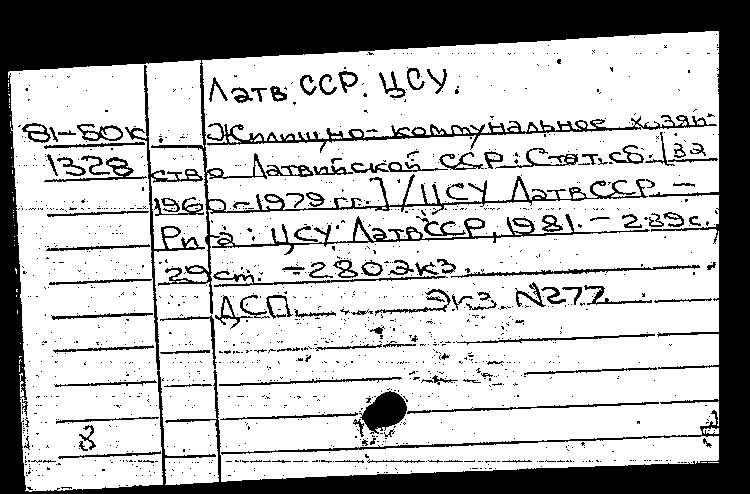 Латв. ССР. ЦСУ.
81-50к Жилищно-коммунальное хозяй-
1328 ство Латвийской ССР: Стат. сб. [за
1960-1979 гг.] / ЦСУ ЛатвССР. -
Рига: ЦСУ ЛатвССР, 1981. - 289с.;
29 см. - 280 экз.
ДСП. Экз N277.
8